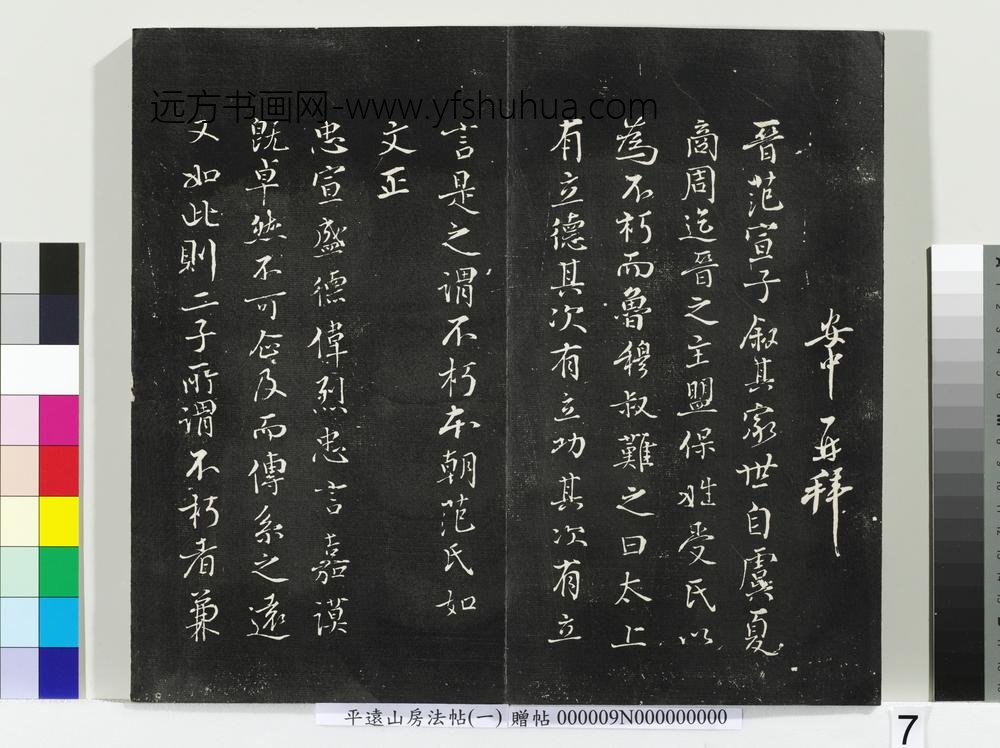 远方书画网-www.yfshuhua.com
安中 再拜
晋范宣子叙其家世自虞夏
商周迄晋之主盟保姓受氏以
為不朽而魯穆叔難之曰太上
有立德其次有立功其次有立
言是之谓不朽本朝范氏如
文正
忠宣盛德偉烈忠言嘉謨
既卓然不可企及而傳系之遠
又如此則二子所谓不朽者兼
平遠山房法帖(一) 贈帖 000009N000000000
7